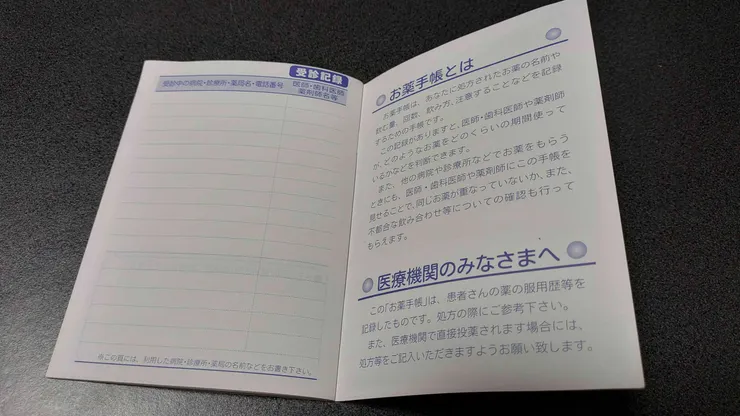 受診記録
受診中の病院・診療所・薬局名・電話番号
医師・歯科医師
薬剤師名等
※この頁には、利用した病院・診療所・薬局の名前などをお書き下さい。
お薬手帳とは
お薬手帳は、あなたに処方されたお薬の名前や
飲む量、回数、飲み方、注意することなどを記録
するための手帳です。
この記録がありますと、医師・歯科医師や薬剤師
が、どのようなお薬をどのくらいの期間使って
いるかなどを判断できます。
また、他の病院や診療所などでお薬をもらう
ときにも、医師・歯科医師や薬剤師にこの手帳を
見せることで、同じお薬が重なっていないか、また、
不都合な飲み合わせ等についての確認も行って
もらえます。
医療機関のみなさまへ
この「お薬手帳」は、患者さんの薬の服用歴等を
記録したものです。処方の際にご参考下さい。
また、医療機関で直接投薬されます場合には、
処方等をご記入いただきますようお願い致します。